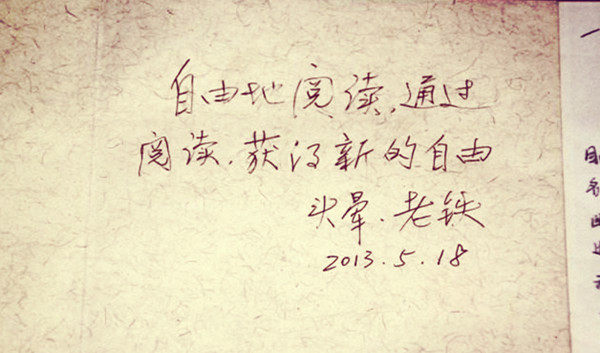 自由地阅读，通过
阅读，获得新的自由
头晕、老铁
2013.5.18